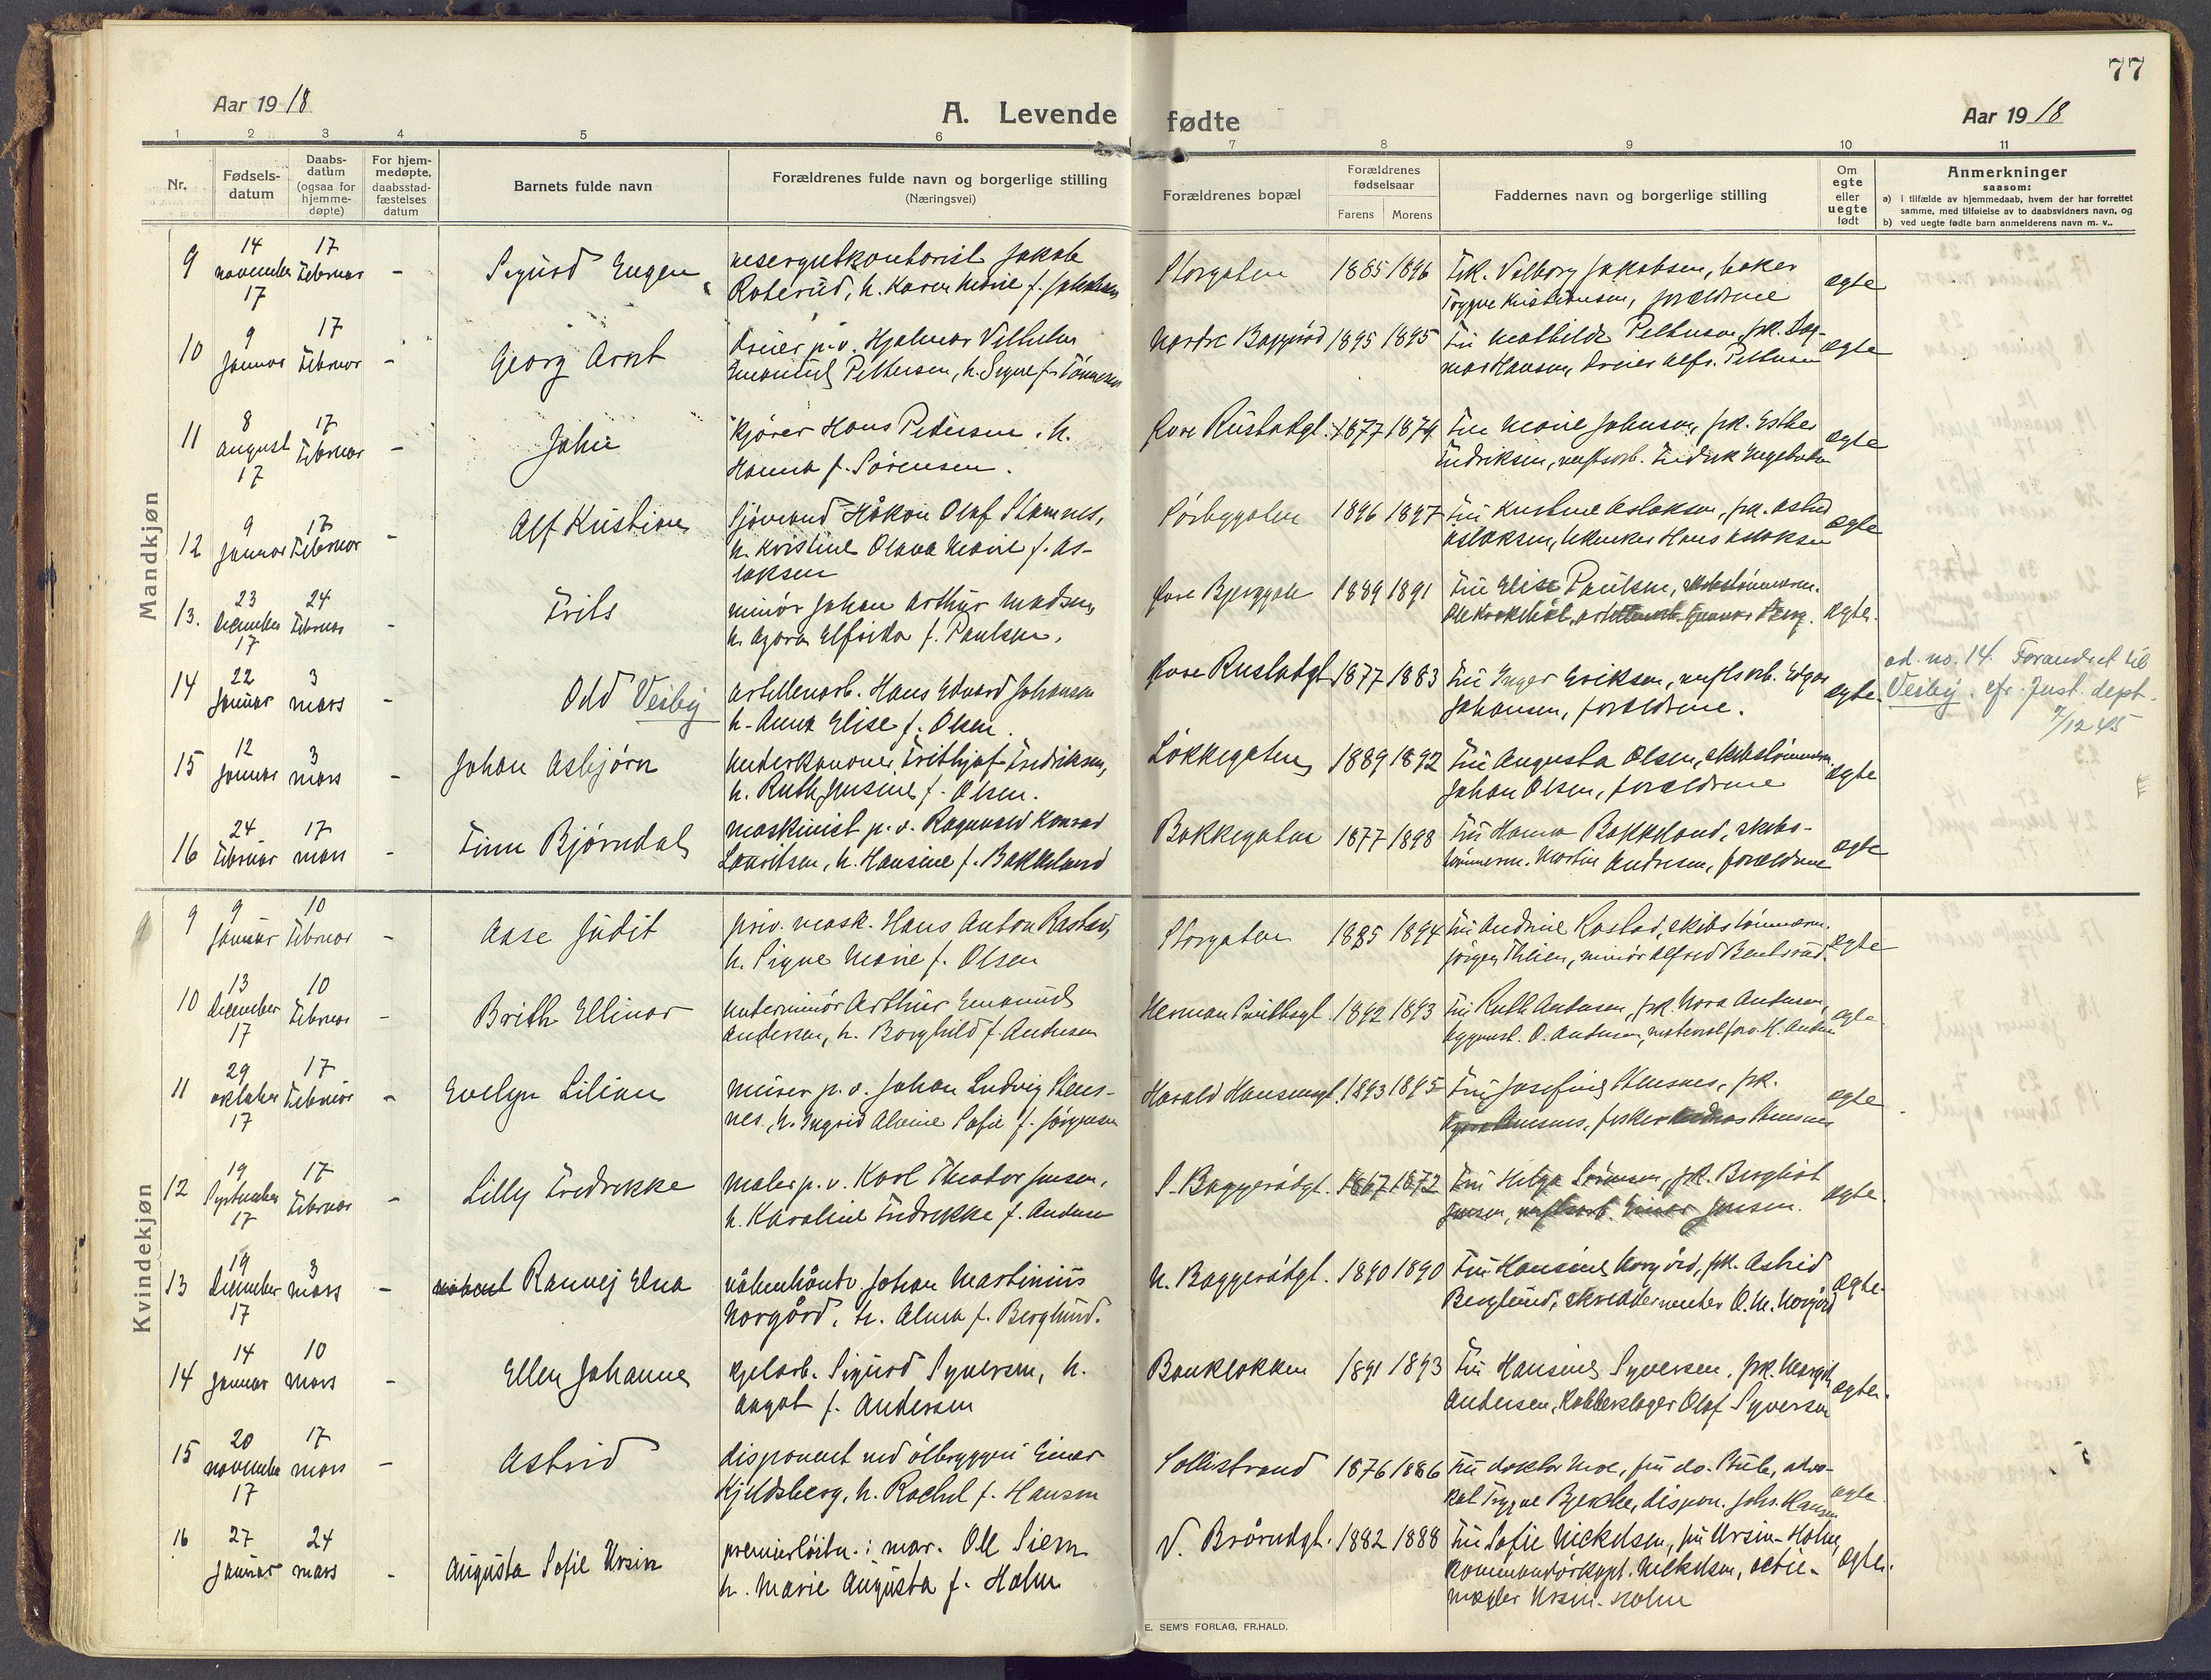 77
Aar 1918
A. Levende fødte
Aar 1918
1 2 3 4 5 6 7 8 9 10 11
Nr.
Fødsels-
datum
Daabs-
datum
(ogsaa for
hjemme-
døpte)
For hjem-
medøpte,
daabsstad-
fæstelses
datum
Barnets fulde navn
Forældrenes fulde navn og borgerlige stilling
(Næringsvei)
Forældrenes bopæl
Forældrenes
fødselsaar
Farens Morens
Faddernes navn og borgerlige stilling
Om
egte
eller
uegte
født
Anmerkninger
saasom:
a) i tilfælde av hjemmedaab, hvem der har forrettet
samme, med tilføielse av to daabsvidners navn, og
b) ved uegte fødte barn anmelderens navn m. v..
Mandkjøn
9 14 november 17 17 Februar - Sigurd Eugen
Jakob
Roterud, h. Karen Marie f. Jakobsen
Storgaten 1885 1896 Frk. Valborg Jakobsen, baker
Trygve Kristiansen, forældrene
ægte
10 9 Januar 17 Februar - Georg Arnt
dreier p.v. Hjalmar Vilhelm
Emanuel Pettersen, h. Signe f. Tønnesen
Nordre Baggerød 1895 1895 Fru Mathilde Pettersen, frk. Dag-
mar Hansen, dreier Alfr. Pettersen
ægte
11 8 august 17 17 Februar - John
kjører Hans Petersen, h.
Hanna f. Sørensen.
Øvre Rustadgt. 1877 1874 Fru Marie Johnsen, frk. Esther
Fredriksen, verftsarb. Fredrik
ægte
12 9 Januar 17 Februar - Alf Kristian
Sjømand Håkon Olaf Stamnes,
h. Kristine Olava Marie f. As-
laksen
Sørbygaten 1896 1897 Fru Kristine Aslaksen, frk. Astrid
Aslaksen, Hans Aslaksen
ægte
13. 23 December 17 24 Februar - Frits
minør Johan Arthur Madsen,
h. Agora Elfrida f. Paulsen.
Øvre Bjerggate 1889 1891 Fru Elise Paulsen, skibstømmerm.
ægte.
14 22 Januar 3 mars - Odd Vesby
artillerarb. Hans Edvard Johansen
h. Anna Elise f. Olsen.
Øvre Rustadgt 1877 1883 Fru Inger Eriksen, verftsarb. Edgar
Johansen, forældrene.
ægte.
ad. no. 14. Forandret til
Vesby. cfr. Just. dept.
7/12 45
15 12 Januar 3 mars - Johan Asbjørn
Underkanoner Frithjof Fredriksen,
h. Ruth Jensine f. Olsen.
Løkkegaten 1889 1892 Fru Augusta Olsen, skibstømmerm.
Johan Olsen, forældrene
ægte
16 24 Februar 17 mars - Finn Bjørndal
maskinist p.v. Ragnvald Konrad
Lauritsen, h. Hansine f. Bakkeland
Bakkegaten 1877 1898 Fru Hanna Bakkeland, skibs-
tømmerm. Martin Andresen, forældrene
ægte
Kvindekjøn
9 9 Januar 10 Februar - Aase Judit
priv. mask. Hans Anton Rastad,
h. Signe Marie f. Olsen
Storgaten 1885 1894 Fru Andrine Rastad, skibstømmerm.
Jørgen Thlien, minør Alfred Bentsrud.
ægte
10 13 December 17 10 Februar - Brith Ellinor
Underminør Arthur Emanuel
Andersen, h. Borghild f. Andersen
Herman 1892 1893 Fru Ruth Andersen, frk. Nora Andersen,
byggmest. O. Andersen, materialforv. H. Andersen
ægte
11 29 oktober 17 17 Februar - Evelyn Lilian
murer p.v. Johan Ludvig Stens-
nes, h. Ingrid Alvine Sofie f. Jørgensen
Harald Hansensgt. 1893 1895 Fru Josefine Stensnes, frk.
Stensnes, fisker Stensnes
ægte
12 19 September 17 17 Februar - Lilly Fredrikke
maler p.v. Karl Theodor Jensen,
h. Karoline Fredrikke f. Andersen
S. Baggerødgt. 1867 1872 Fru Helga Sørensen, frk. Bergliot
Jensen, verftsarb. Einar Jensen.
ægte.
13 19 December 17 3 mars - Rannvej Elna
våbenhåndv. Johan Martinius
Norgård, h. Alma f. Berglund.
N. Baggerødgt. 1890 1890 Fru Hansine Norgård, frk. Astrid
Berglund, skreddermester O. M. Norgård
ægte.
14 14 Januar 10 mars - Ellen Johanne
kjelarb. Sigurd Syversen, h.
Aagot f. Andersen
Bankløkken 1891 1893 Fru Hansine Syversen, frk. Margith
Andersen, Kobberslager Olaf Syversen
ægte.
15 20 november 17 17 mars - Astrid
disponent ved ølbryggeri Einar
Kjeldsberg, h. Rachel f. Hansen
Sollistrand 1876 1886 Fru doktor Moe, fru do. Bull, advo-
kat Trygve Bjerke, dispon. Johs. Hansen
ægte
16 27 Januar 24 mars - Augusta Sofie Ursin
premierløitn. i mar. Ole Siem
h. Marie Augusta f. Holm
V. Brårudgt. 1882 1888 Fru Sofie Mickelsen, fru Ursin-Holm,
kommandørkapt. Mickelsen, aktie-
mægler Ursin-Holm
ægte.
E. SEM'S FORLAG, FR.HALD.